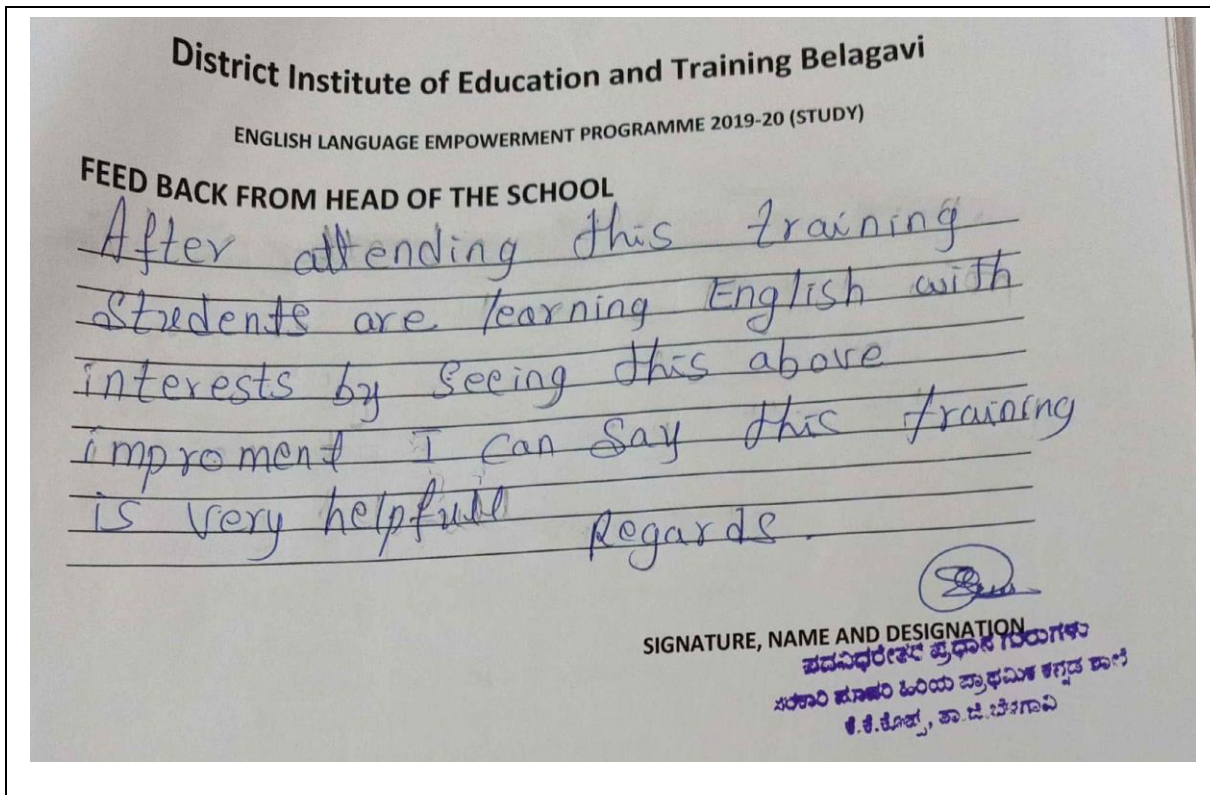 District Institute of Education and Training Belagavi
ENGLISH LANGUAGE EMPOWERMENT PROGRAMME 2019-20 (STUDY)
FEED BACK FROM HEAD OF THE SCHOOL
After attending this training
Students are learning English with
interests by seeing this above
improment I can say this training
is very helpfull Regards.
SIGNATURE, NAME AND DESIGNATION
ಪದವಿಧರೇತರ ಪ್ರಧಾನ ಗುರುಗಳು
ಸರಕಾರಿ ಮಾದರಿ ಹಿರಿಯ ಪ್ರಾಥಮಿಕ ಕನ್ನಡ ಶಾಲೆ
ಕೆ.ಕೆ.ಕೊಪ್ಪ, ತಾ.ಜಿ.ಬೆಳಗಾವಿ